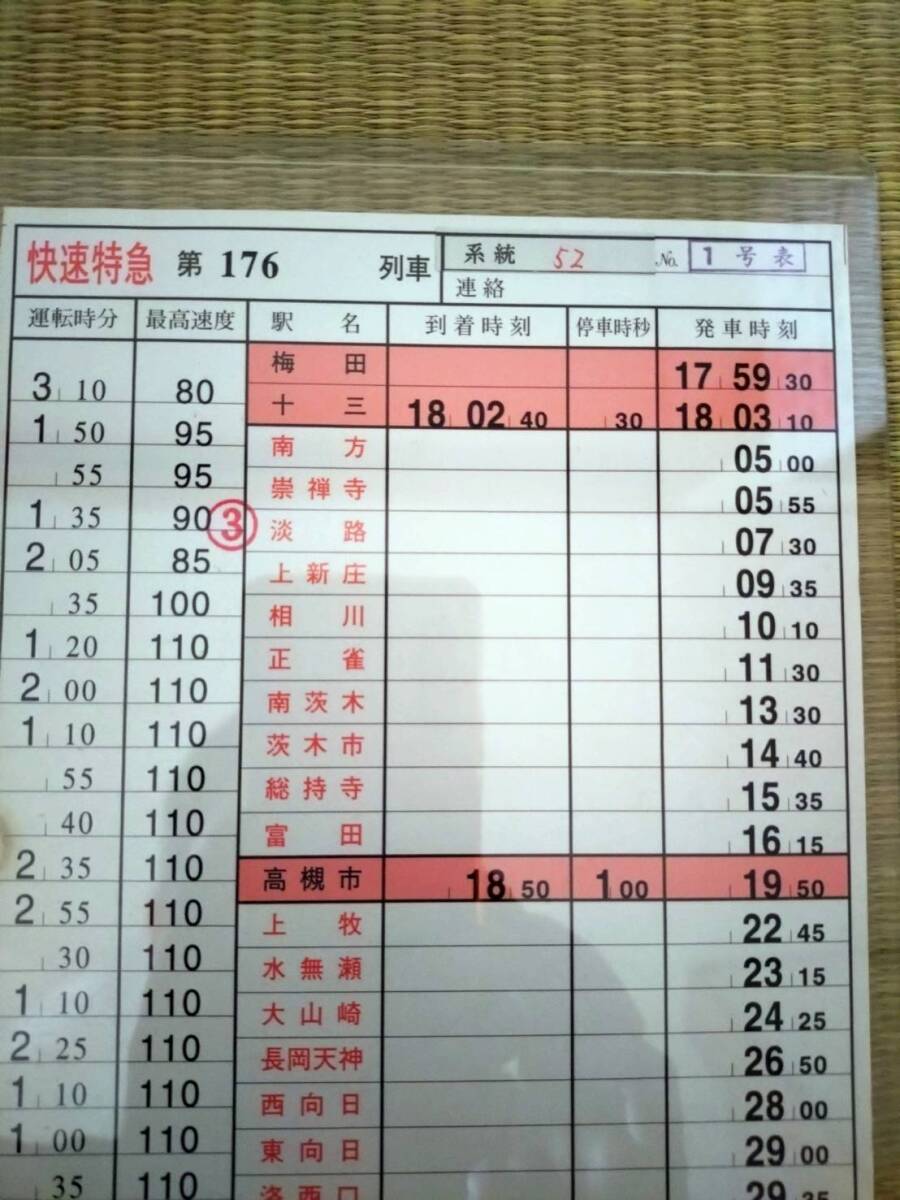 快速特急 第 176 列車 系統 52 No. 1号表
連絡
運転時分 最高速度 駅名 到着時刻 停車時秒 発車時刻
3 10 80 梅田 17 59 30
1 50 95 十三 18 02 40 30 18 03 10
55 95 南方 05 00
1 35 90 崇禅寺 05 55
2 05 85 ③ 淡路 07 30
35 100 上新庄 09 35
1 20 110 相川 10 10
2 00 110 正雀 11 30
1 10 110 南茨木 13 30
55 110 茨木市 14 40
40 110 総持寺 15 35
2 35 110 富田 16 15
2 55 110 高槻市 18 50 1 00 19 50
30 110 上牧 22 45
1 10 110 水無瀬 23 15
2 25 110 大山崎 24 25
1 10 110 長岡天神 26 50
1 00 110 西向日 28 00
35 110 東向日 29 00
洛西口 29 35